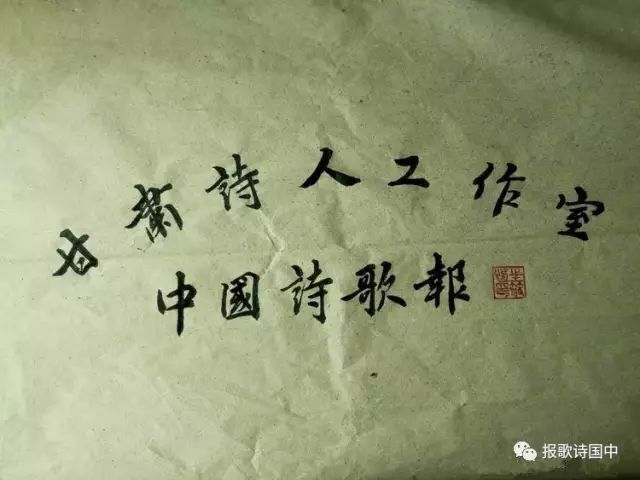 詩人工作室
中國詩歌報
报歌诗国中